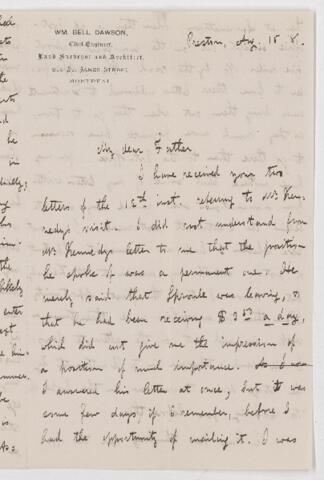 WM. BELL DAWSON,
Civil Engineer,
Land Surveyor and Architect,
JAMES STREET
MONTREAL
Preston, Aug. 18
My dear Father
I have received your two
letters of the 12th inst. referring to Mr Ken-
nedys visit. I did not understand from
Mr Kennedys letter to me that the position
he spoke of was a permanent one. He
merely said that Sproule was leaving, &
that he had been receiving $3 a day,
which did not give me the impression of
a position of much importance.
I answered his letter at once, but it was
some few days if I remember, before I
had the opportunity of mailing it. I was